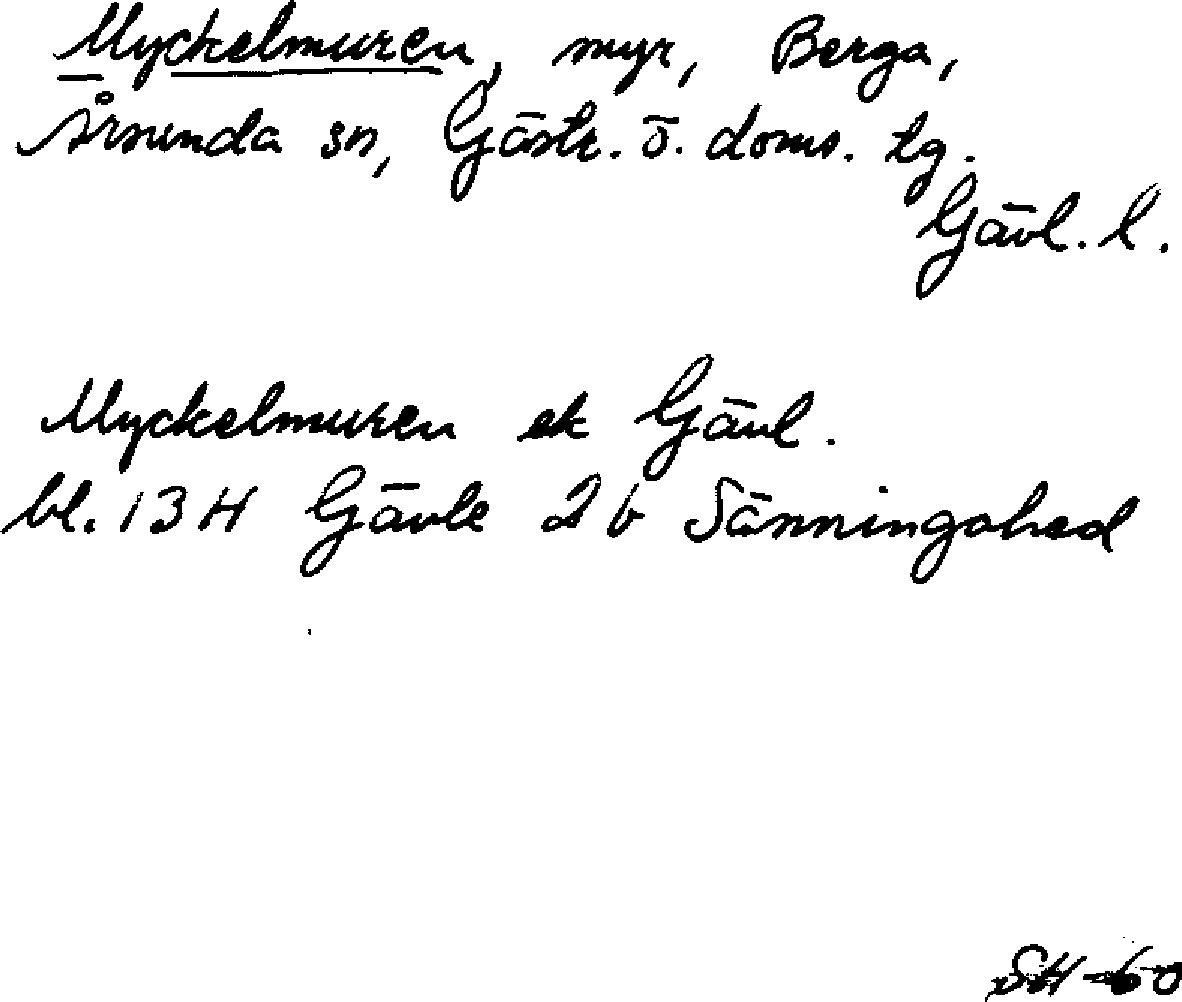 Myckelmuren, myr, Berga,
Årsunda sn, Gästr. ö. doms. tg.
Gävl. l.
Myckelmuren ek Gävl.
bl. 13 H Gävle 2 b Sänningahed
SH-60